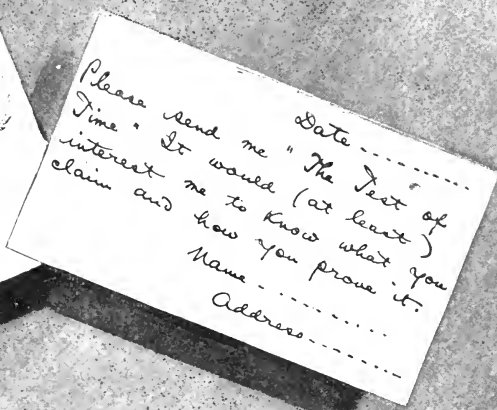 Date..........
Please send me "The Test of
Time" It would (at least)
interest me to know what you
claim and how you prove it.
Name..........
Address........